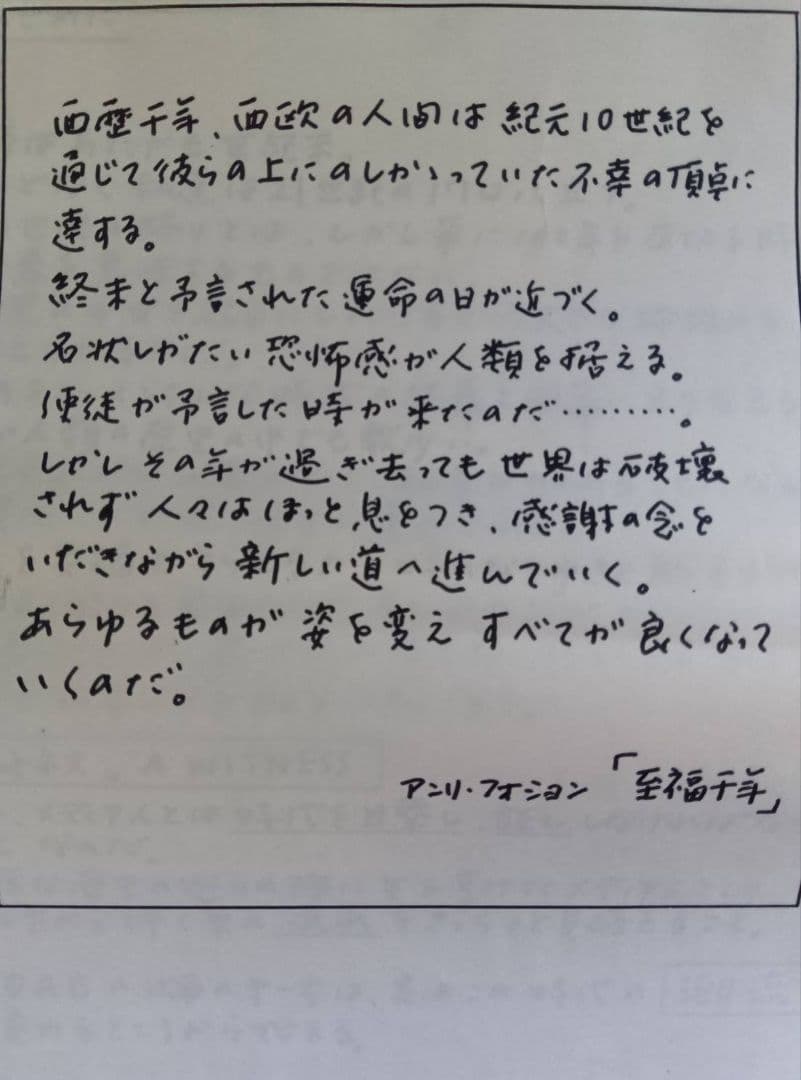 西歴千年、西欧の人間は紀元10世紀を
通じて彼らの上にのしかかっていた不幸の頂点に
達する。
終末と予言された運命の日が近づく。
名状しがたい恐怖感が人類を捉える。
使徒が予言した時が来たのだ………。
しかしその年が過ぎ去っても世界は破壊
されず人々はほっと息をつき、感謝の念を
いだきながら新しい道へ進んでいく。
あらゆるものが姿を変えすべてが良くなって
いくのだ。
アンリ・フォション「至福千年」